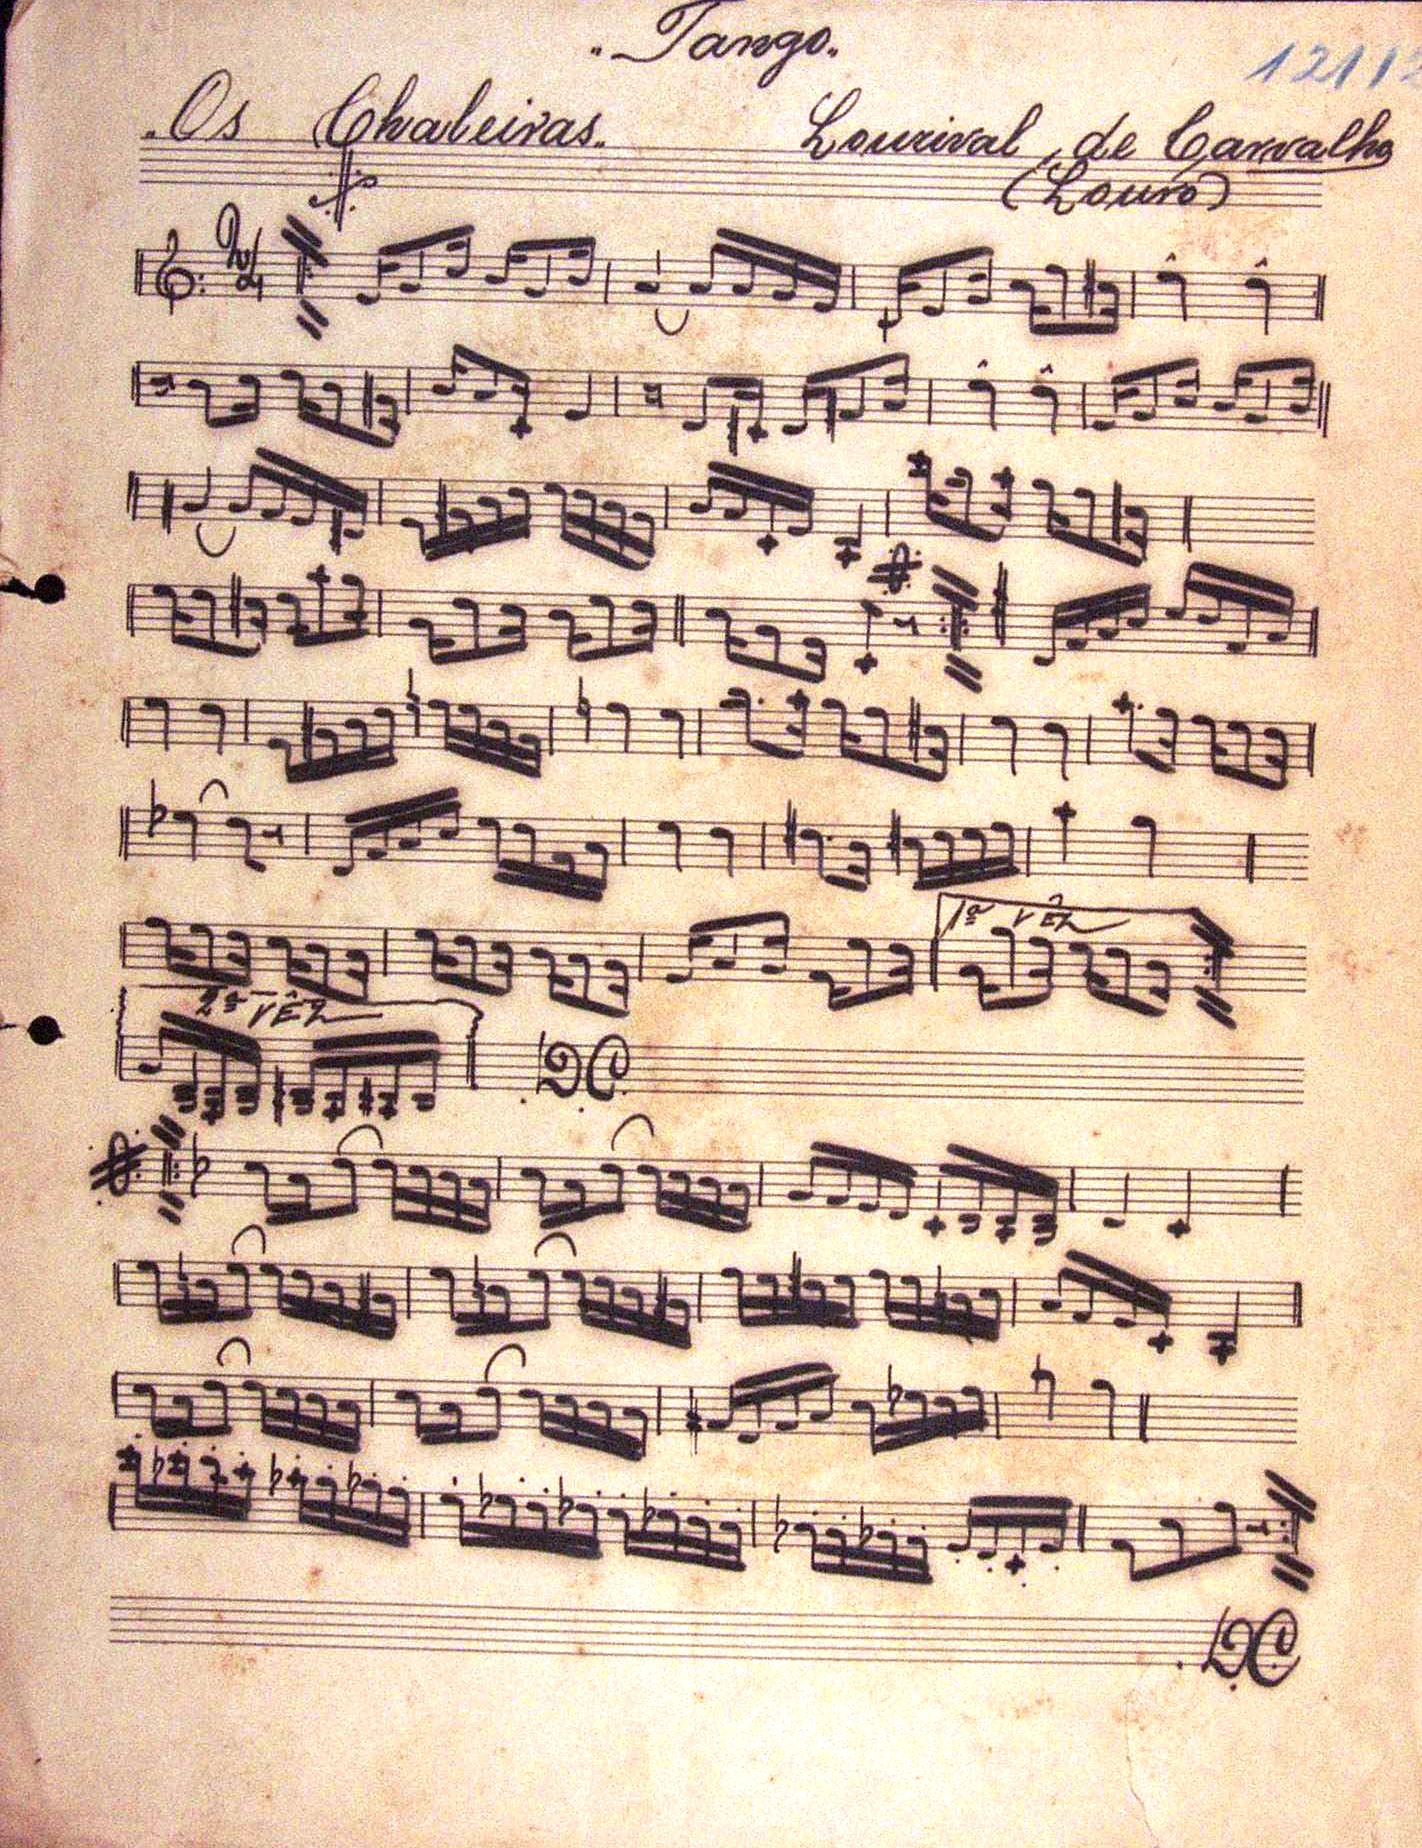 "Tango"
12113
"Os Chaleiras" Lourival de Carvalho
(Louro)
2/4
1ª VÊZ
2ª VÊZ
DC
DC